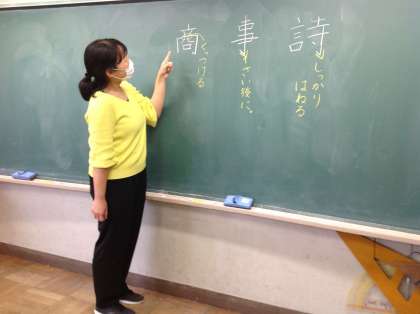 詩
しっかり
はねる
事
さい後に。
商
くっつける